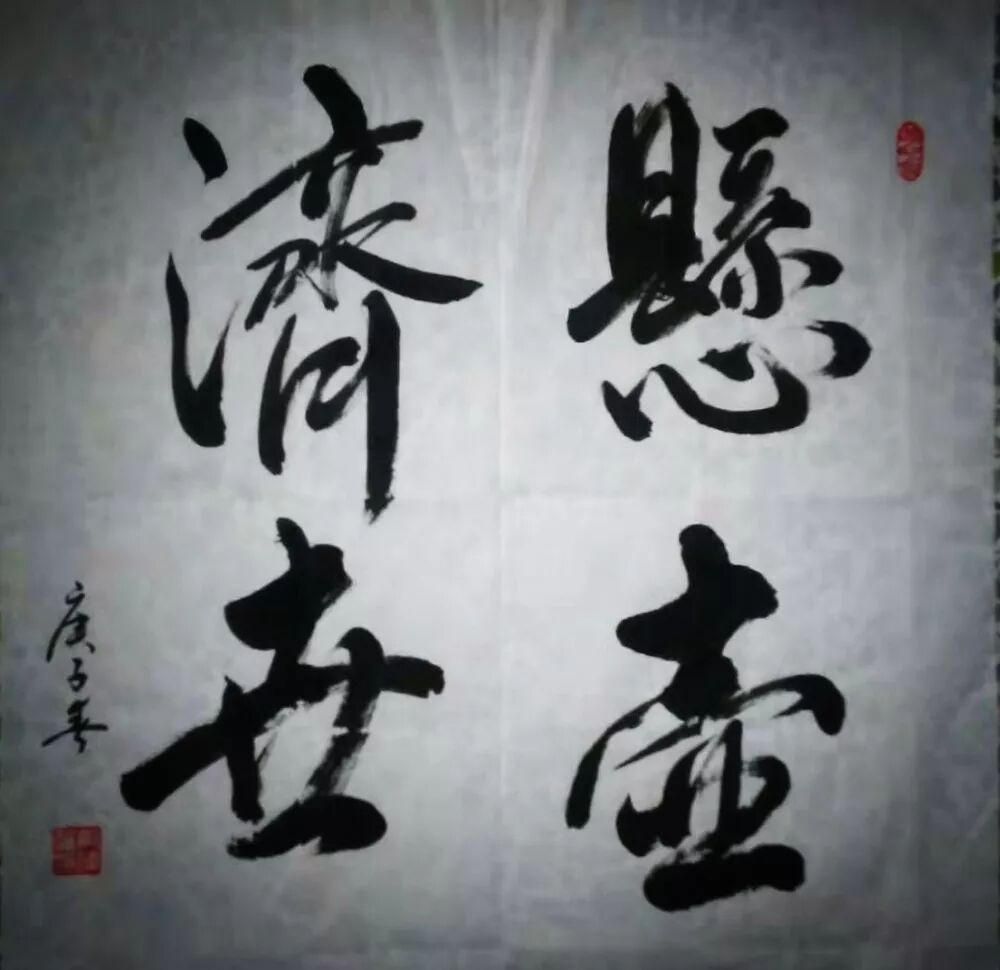 懸壺
濟世
庚子春